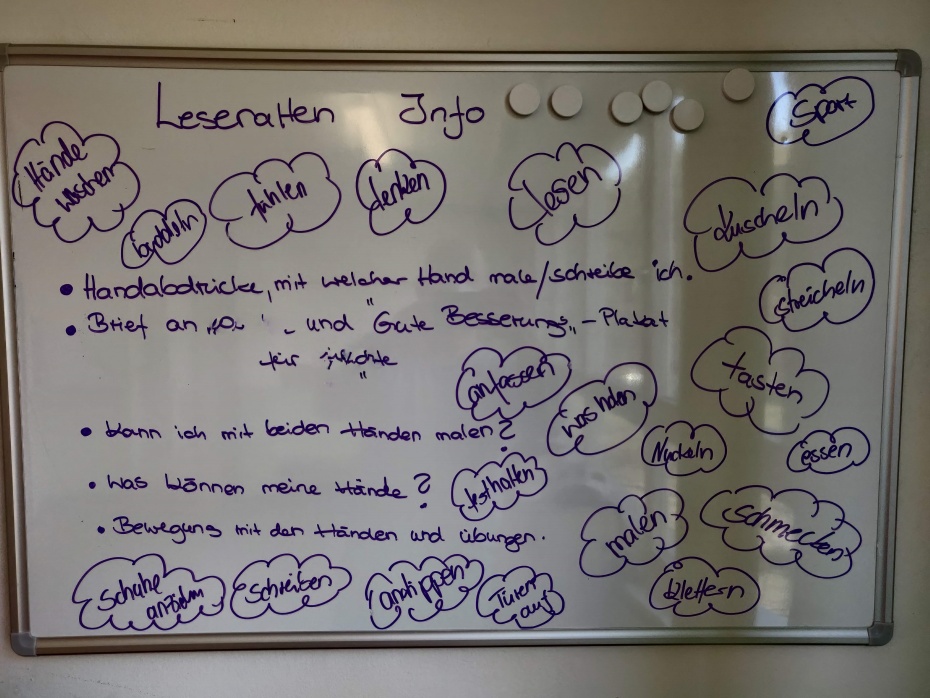 Leseratten Info
Sport
Hände
waschen
fühlen
denken
lesen
kuscheln
• Handabdrücke, mit welcher Hand male/schreibe ich.
streicheln
• Brief an und Gute Besserung" - Plakat
für
anfassen
tasten
• Kann ich mit beiden Händen malen?
Nuckeln
essen
• Was können meine Hände?
festhalten
malen
schmecken
• Bewegung mit den Händen und übungen.
Schuhe
anziehen
schreiben
antippen
Türen
auf
klettern